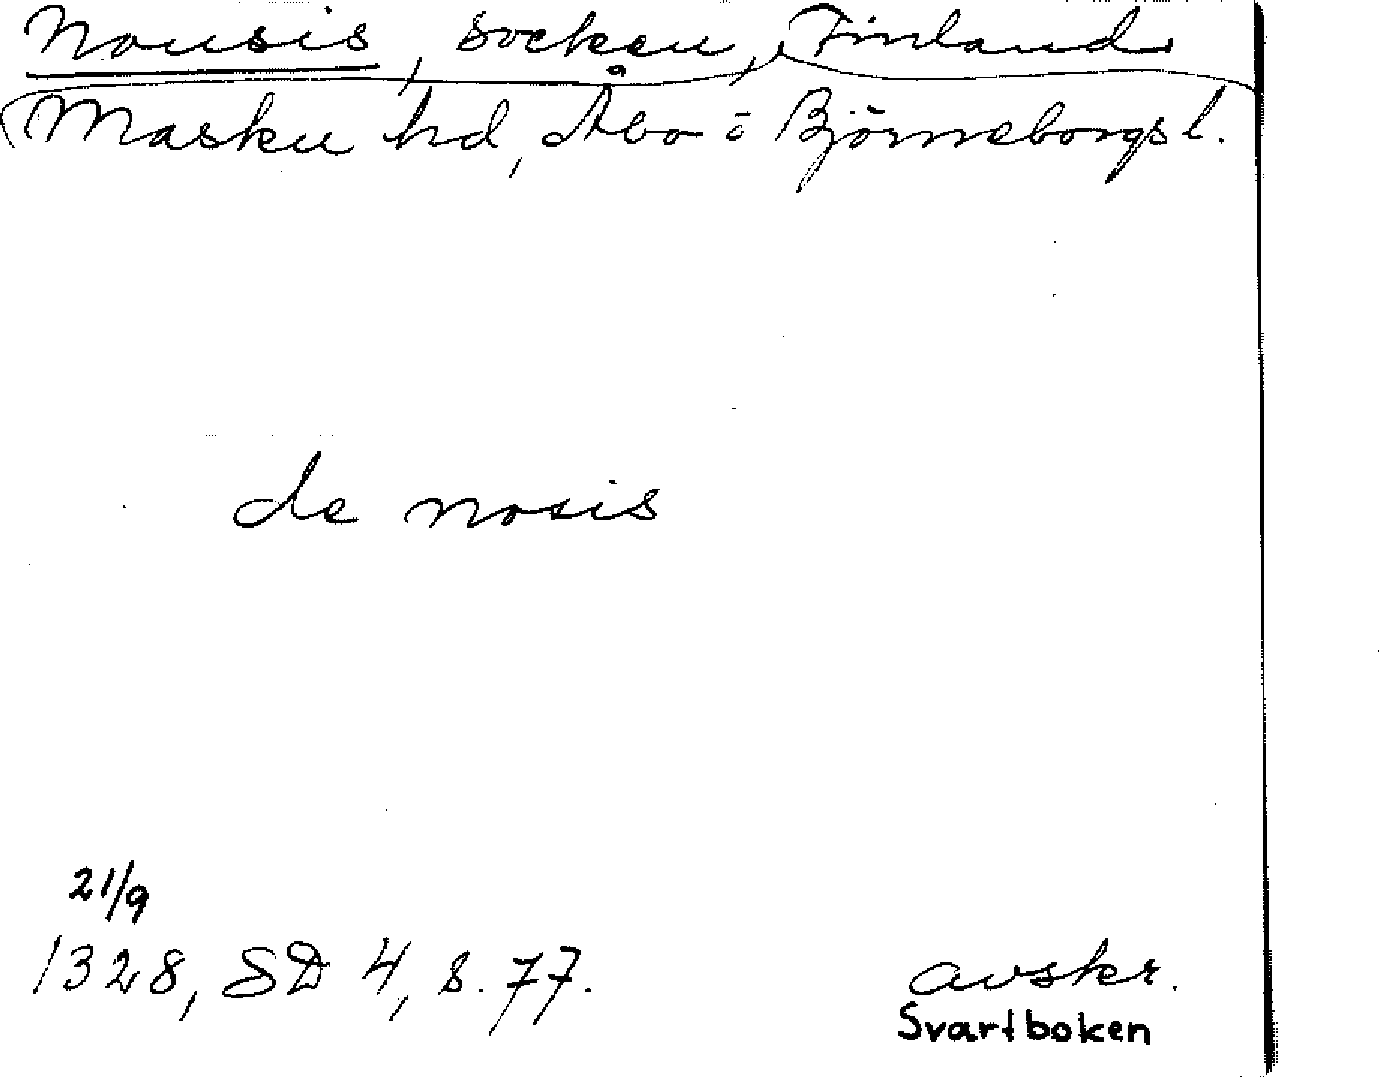 Nousis, socken, Finland
Masku hd, Åbo o Björneborgs l.
de nosis
21/9
1328, SD 4, s. 77.
avskr.
Svartboken